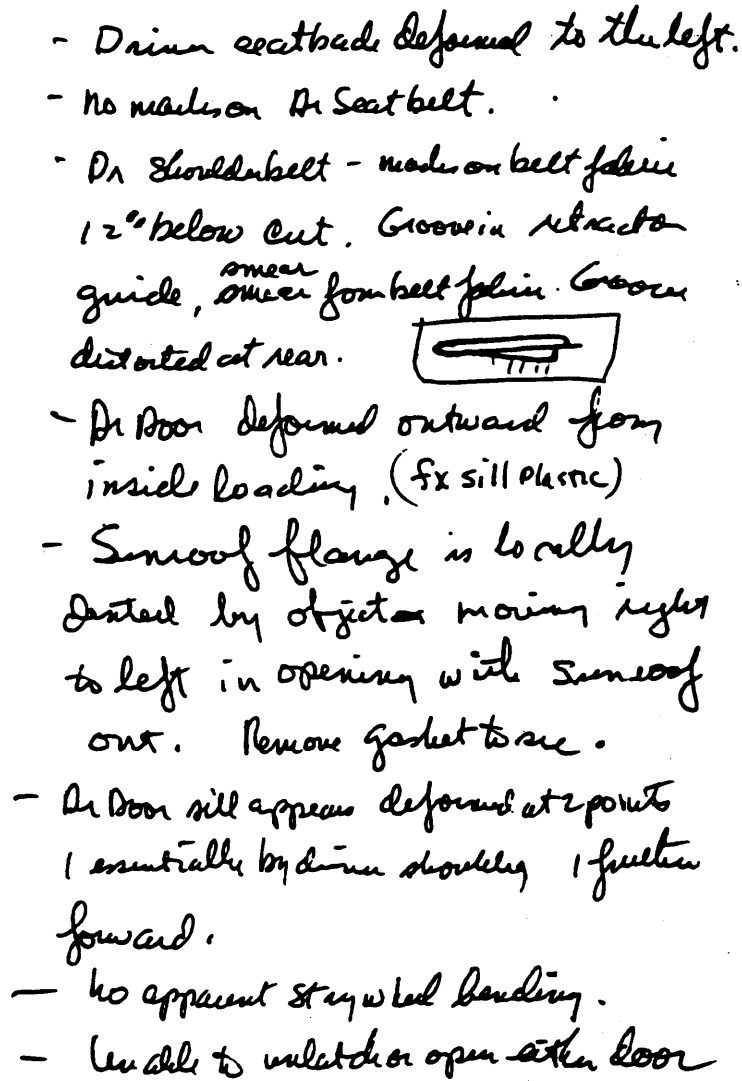 - Driver seatback deformed to the left.
- No marks on Dr Seatbelt.
- Dr Shoulderbelt - marks on belt fabric
12" below cut. Groove in retractor
guide, smear from belt fabric. Groove
distorted at rear.
- Dr Door deformed outward from
inside loading. (fx sill plastic)
- Sunroof flange is locally
dented by object moving right
to left in opening with sunroof
out. Remove gasket to see.
- Dr Door sill appears deformed at 2 points
1 essentially by driver shoulder, 1 further
forward.
- No apparent strg wheel bending.
- Unable to unlatch or open either door